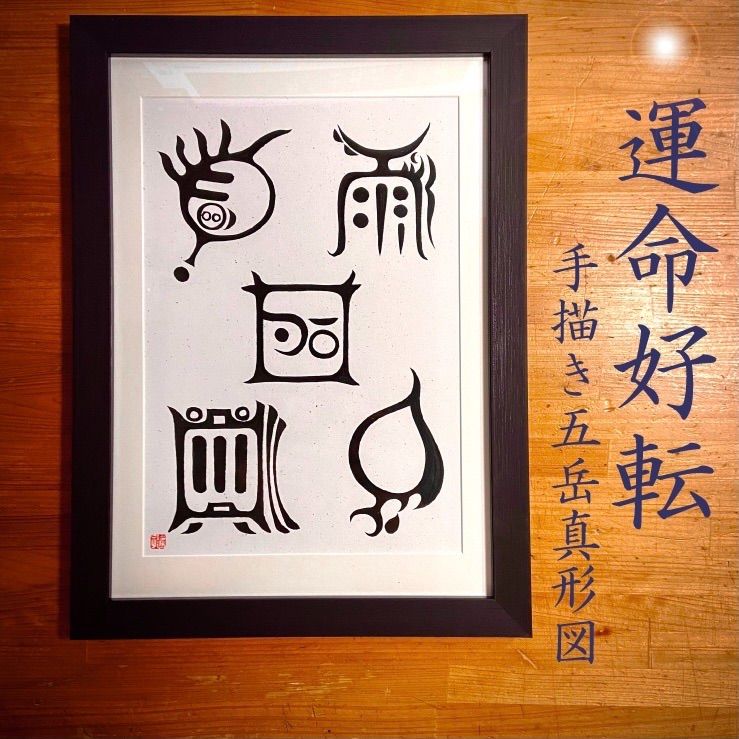 運命好転
手描き五岳真形図